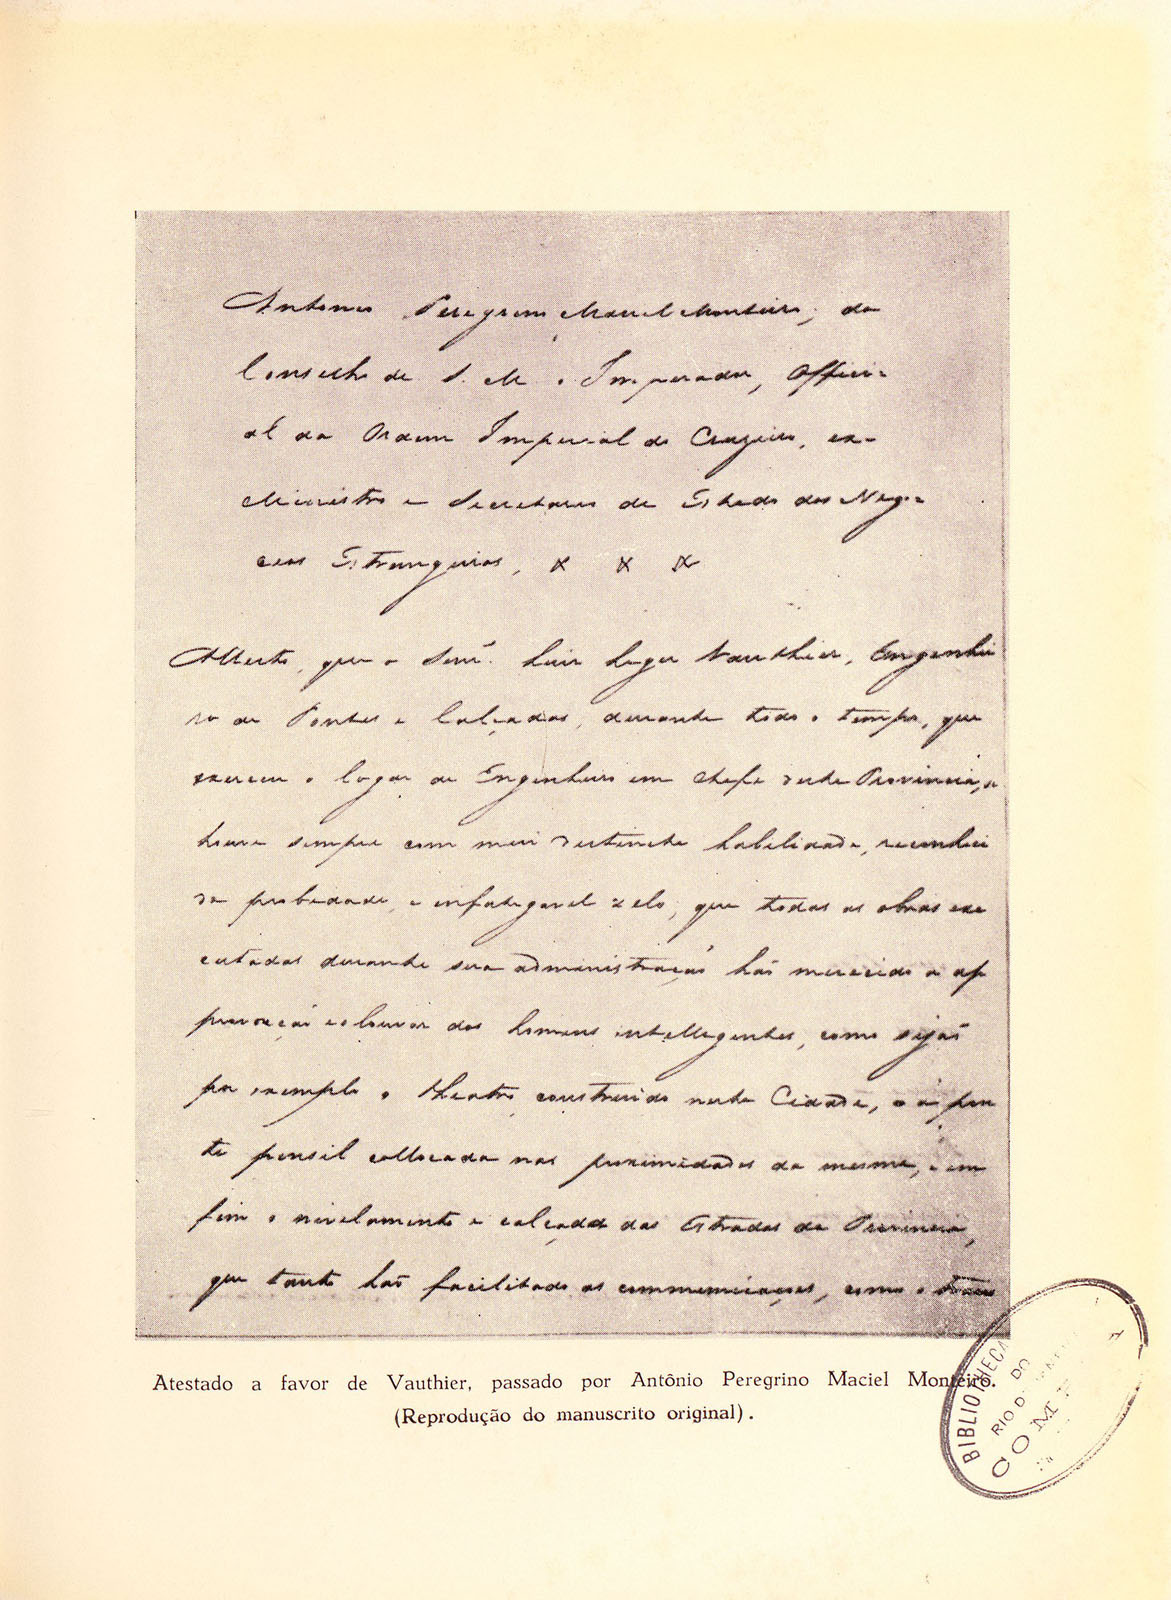 Antonio Peregrino Maciel Monteiro, do
Conselho de S. M. o Imperador, Offici-
al da Ordem Imperial do Cruzeiro, ex-
Ministro e Secretario de Estado dos Nego-
cios Estrangeiros, &  &  &
Attesto, que o Senr. Luis Leger Vauthier, Engenhei
ro de Pontes e Calçadas, durante todo o tempo, que
exerceu o logar de Engenheiro em Chefe desta Provincia, se
houve sempre com mui distincta habilidade, reconheci
da probidade, e infatigavel zelo; que todas as obras exe
cutadas durante sua administração hão merecido a ap
provação e louvor dos homens intelligentes, como sejão
por exemplo o theatro construido nesta Cidade, e a pon
te pensil collocada nas proximidades da mesma, e em
fim o nivelamento e calçada das Estradas da Provincia,
que tanto hão facilitado as communicações, como o
Atestado a favor de Vauthier, passado por Antônio Peregrino Maciel Monteiro.
(Reprodução do manuscrito original).
BIBLIOTHECA
DO
RIO D
COM